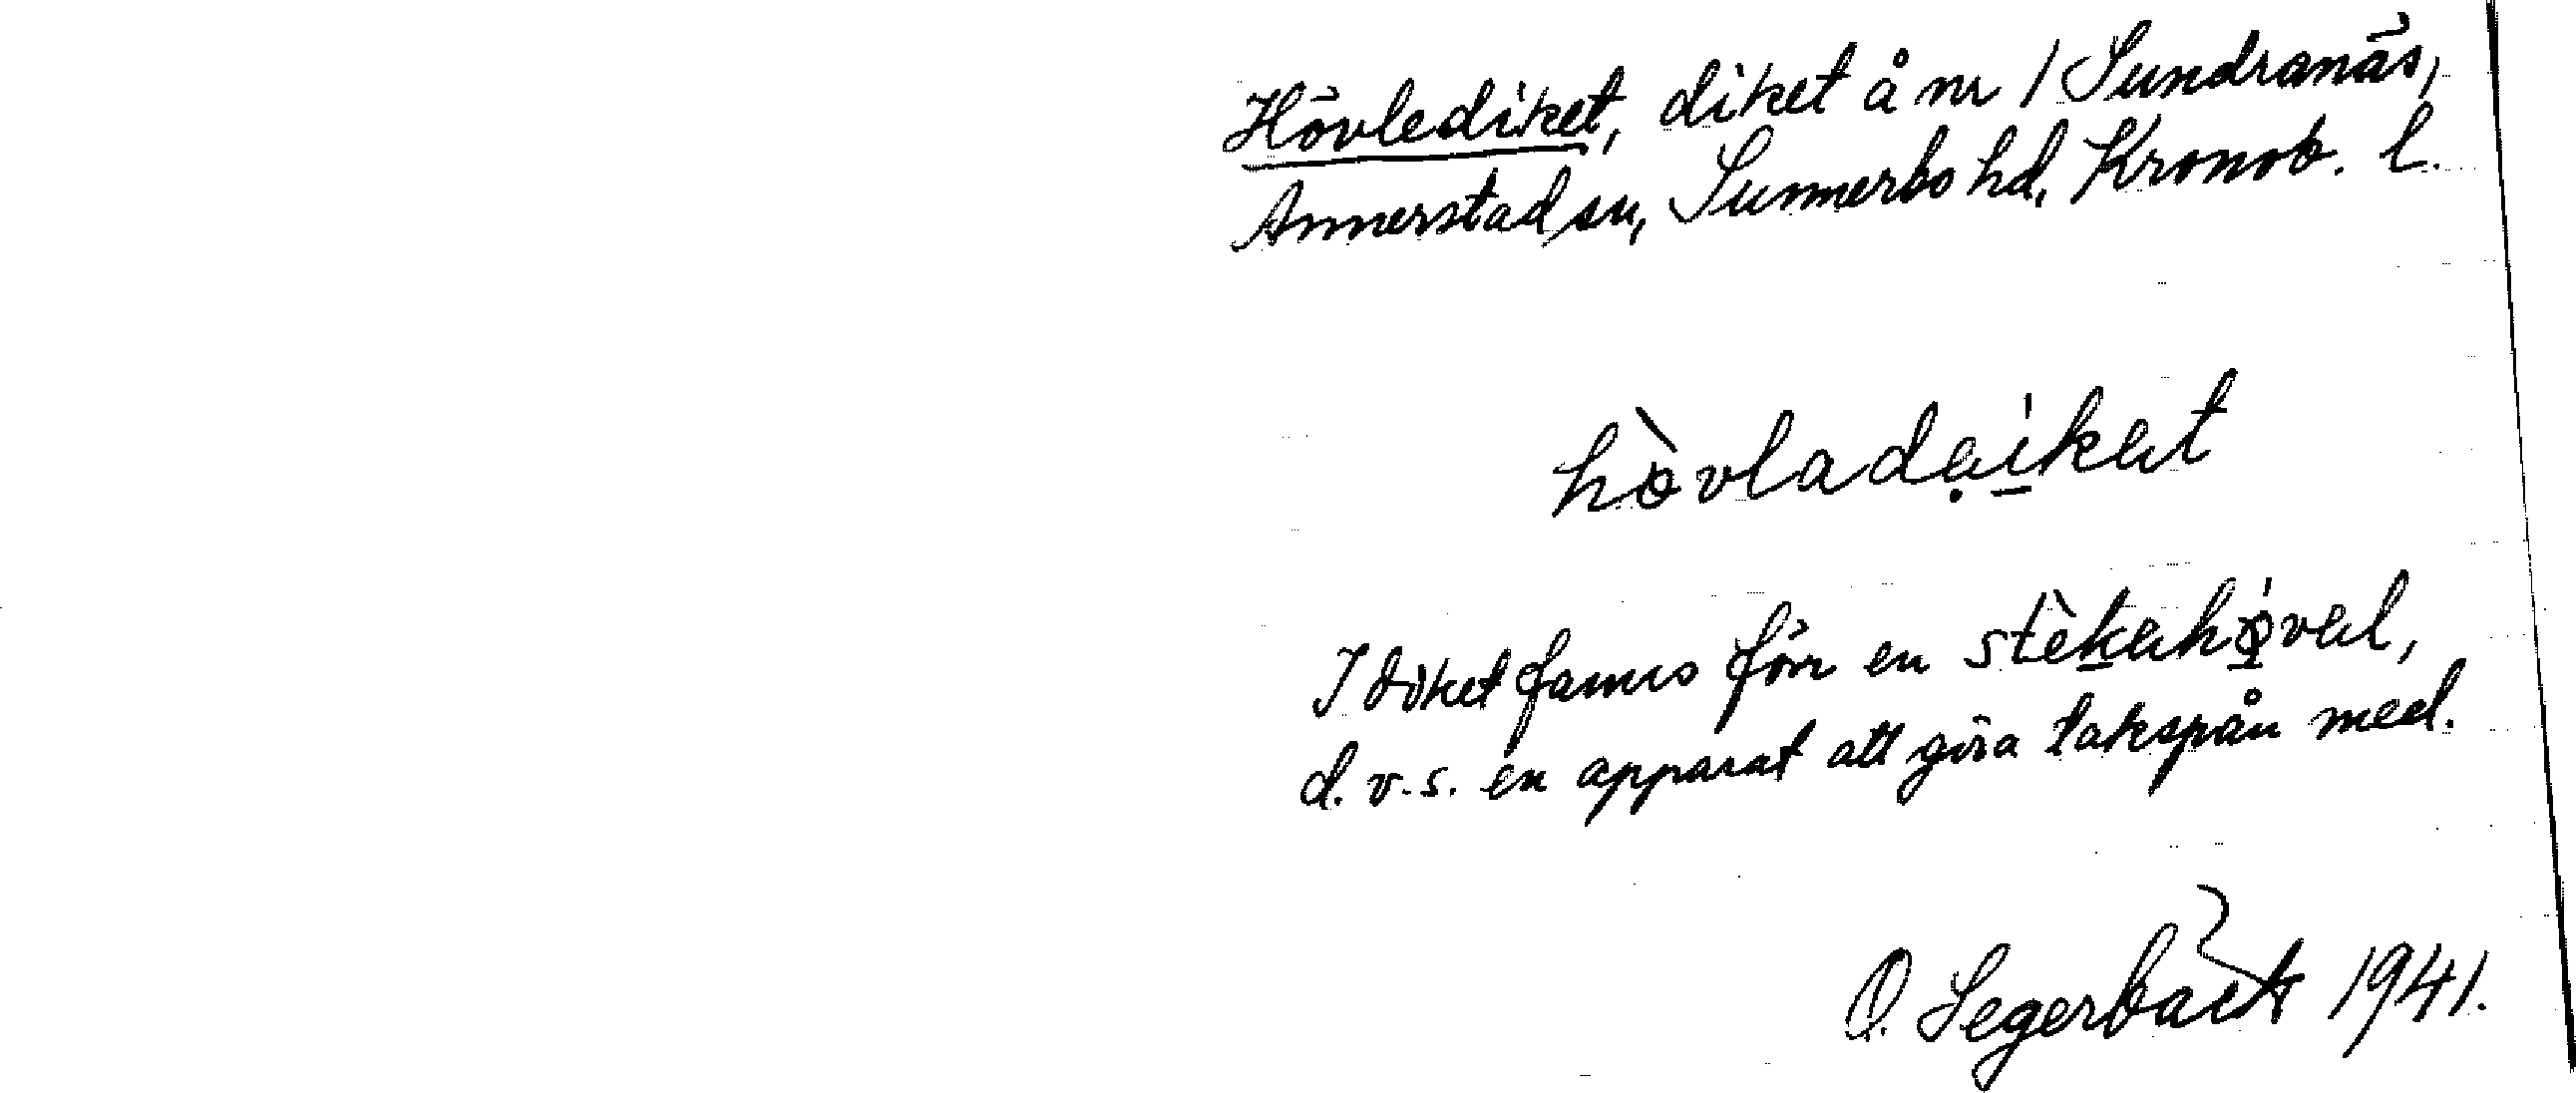 Hövlediket, diket å nr 1 Sundranäs,
Annerstad sn, Sunnerbo hd, Kronob. l.
hòvladaikət
I diket fanns förr en stèkəhövəl,
d.v.s. en apparat att göra takspån med.
O. Segerbäck 1941.